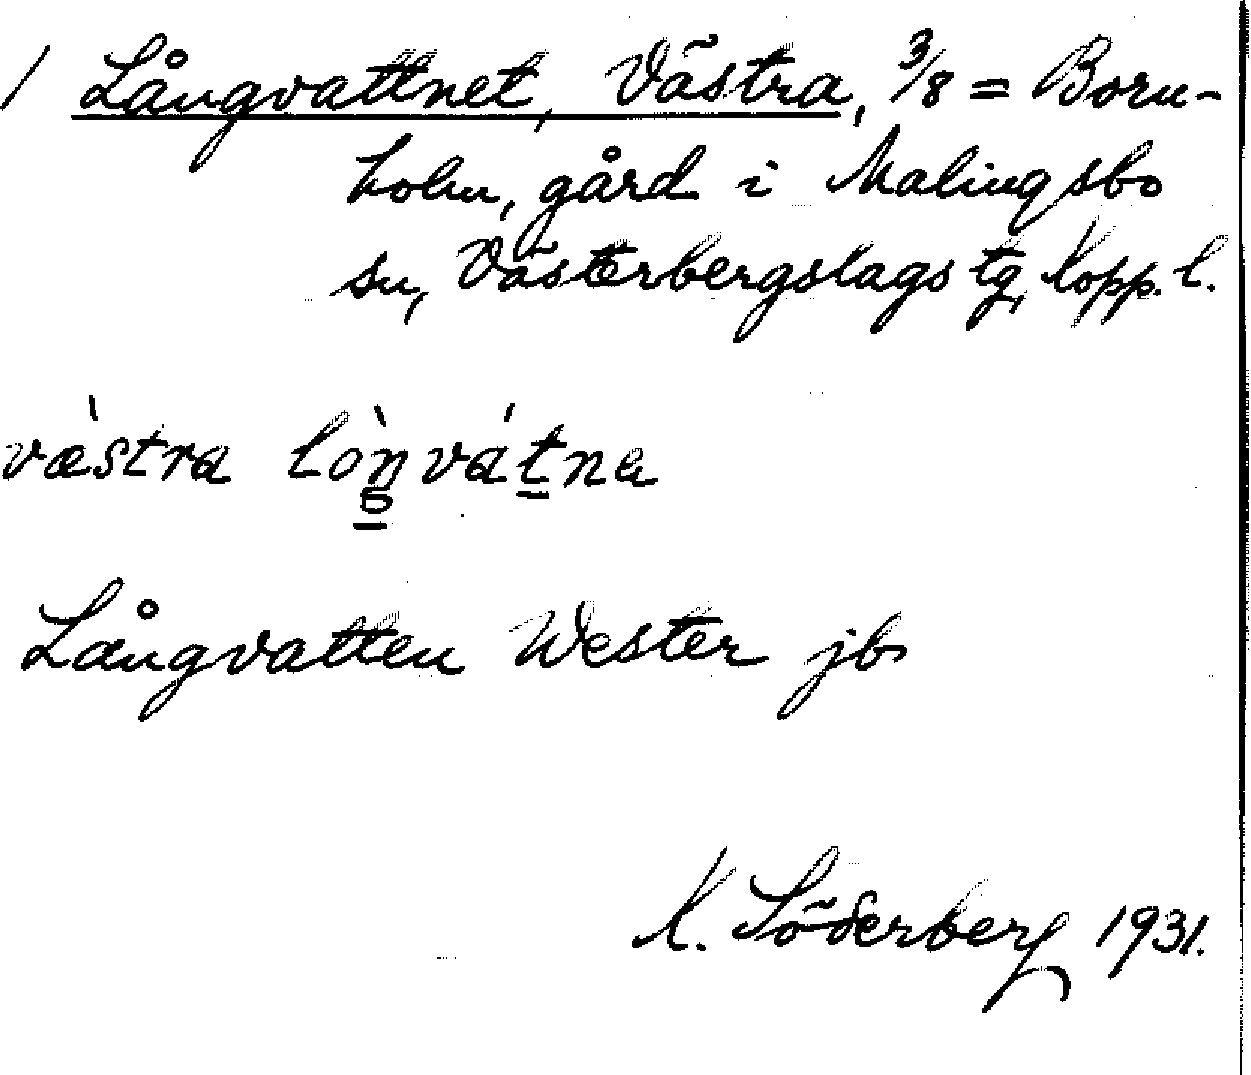 / Långvattnet, Västra, 3/8 = Born-
holm, gård i Malingsbo
sn, Västerbergslags tg, Kopp. l.
væ̀stra lòŋvátna
Långvatten Wester jb
K. Söderberg 1931.